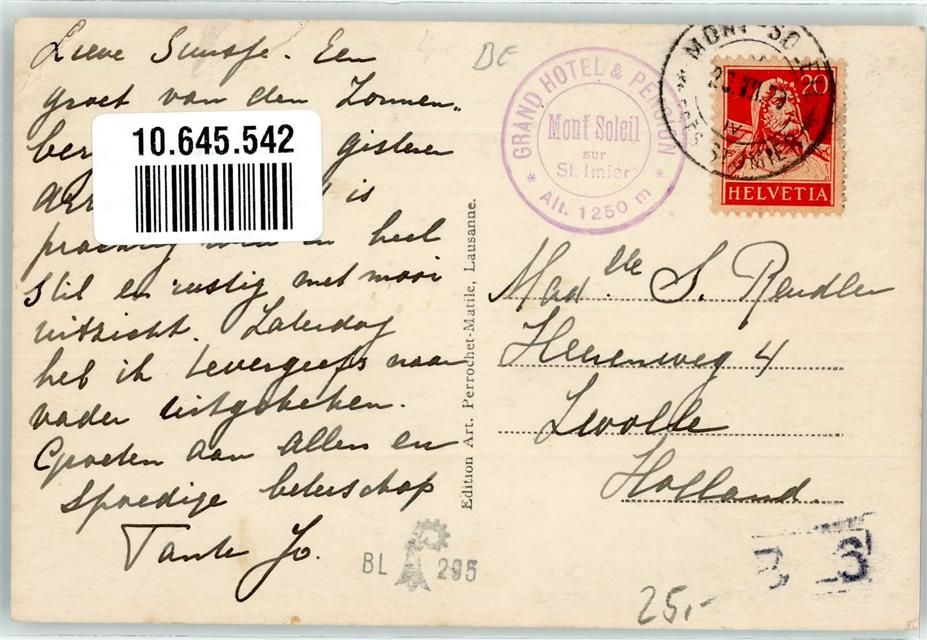 Lieve Suusje. Een
groet van den Zonnen-
ber
gisteren
is
prachtig en heel
stil en rustig met mooi
uitzicht. Zaterdag
heb ik tevergeefs naar
vader uitgekeken.
Groeten aan allen en
spoedige beterschap
Tante Jo.
10.645.542
BE
GRAND HOTEL & PENSION
Mont Soleil
sur
St. Imier
* Alt. 1250 m *
MONT-SOLEIL
20
HELVETIA
Edition Art. Perrochet-Matile, Lausanne.
Madelle S. Rendler
Heerenweg 4
Zwolle
Holland.
BL 295
25,-
3